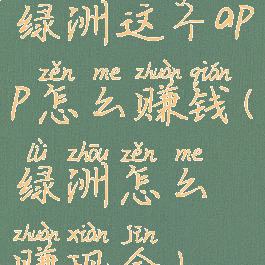 绿洲这个ap
zěn me zhuàn qián
p怎么赚钱(
lǜ zhōu zěn me
绿洲怎么
zhuàn xiàn jīn
赚现金)